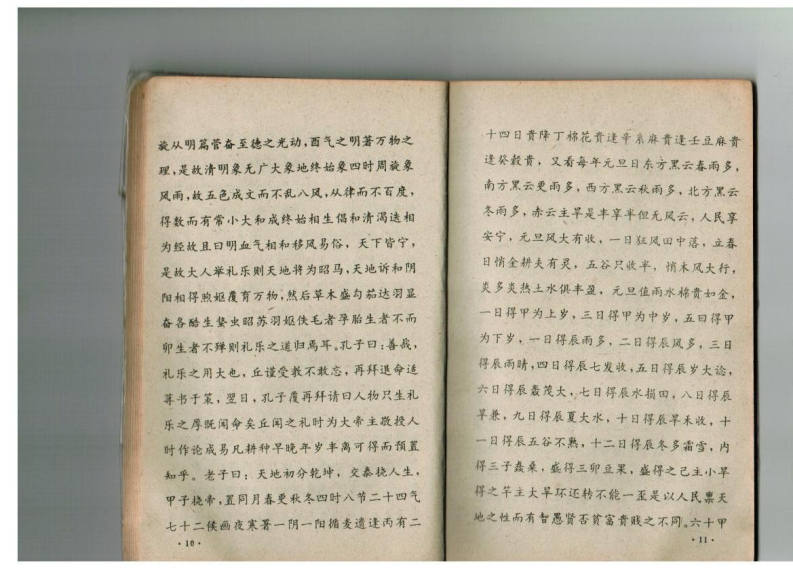 旋从明篇营奋至德之光动，西气之明著万物之
理，是故清明象无广大象地终始象四时周旋象
风雨，故五色成文而不乱八风，从律而不百度，
得数而有常小大和成终始相生倡和清渴迭相
为经故且曰明血气相和移风易俗，天下皆宁，
是故大人举礼乐则天地将为昭马，天地诉和阴
阳相得煦妪覆育万物，然后草木盛勾茄达羽显
奋各酷生蛰虫昭苏羽妪伕毛者孚胎生者不而
卵生者不殚则礼乐之道归焉耳。孔子曰：善哉，
礼乐之用大也，丘谨受教不敢忘，再拜退命连
荨书于策，翌日，孔子覆再拜请曰人物只生礼
乐之厚既闻命矣丘闻之礼时为大帝主敬授人
时作论成易凡耕种早晚年岁丰离可得而预置
知乎。老子曰：天地初分乾坤，交泰挠人生，
甲子挠帝，置同月春更秋冬四时八节二十四气
七十二候画夜寒暑一阴一阳循麦遗逢丙有二
·10·
十四日贵降丁棉花贵逢辛系麻贵逢壬豆麻贵
逢癸穀贵，又看每年元旦日东方黑云春雨多，
南方黑云更雨多，西方黑云秋雨多，北方黑云
冬雨多，赤云主旱是丰享半但无风云，人民享
安宁，元旦风大有收，一日狂风田中落，立春
日悄金耕夫有灵，五谷只收半，悄木风大行，
炎多炎热土水俱丰盈，元旦值雨水棉贵如金，
一日得甲为上岁，三日得甲为中岁，五曰得甲
为下岁，一日得辰雨多，二日得辰风多，三日
得辰雨晴，四日得辰七发收，五日得辰岁大谂，
六日得辰轰茂大，七日得辰水损田，八日得辰
旱兼，九日得辰夏大水，十日得辰旱未收，十
一日得辰五谷不熟，十二日得辰冬多霜雪，内
得三子森桑，盛得三卯豆果，盛得之己主小旱
得之竿主大旱环还转不能一至是以人民票天
地之性而有智愚贤否贫富贵贱之不同。六十甲
·11·